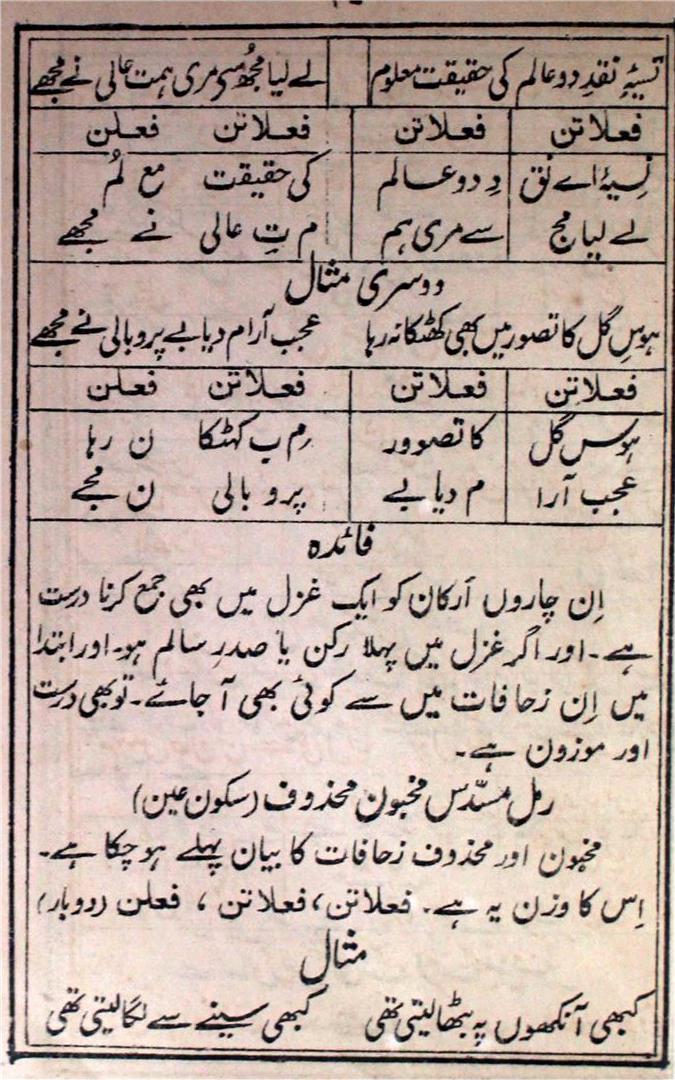 نسیۂ نقدِ دو عالم کی حقیقت معلوم لے لیا مجھ سے مری ہمت عالی نے مجھے
فعلاتن فعلاتن فعلاتن فعلن
نِسیۂ اے نق دِ دو عالم کی حقیقت مع لُم
لے لیا مج سے مری ہم م تِ عالی نے مجھے
دوسری مثال
ہوسِ گل کا تصور میں بھی کھٹکا نہ رہا عجب آرام دیا بے پر و بالی نے مجھے
فعلاتن فعلاتن فعلاتن فعلن
ہوس گل کا تصوور م ب کھٹکا ن رہا
عجب آرا م دیا بے پر و بالی ن مجے
فائدہ
اِن چاروں اَرکان کو ایک غزل میں بھی جمع کرنا درست
ہے۔ اور اگر غزل میں پہلا رکن یا صدرِ سالم ہو۔ اور ابتدا
میں اِن زحافات میں سے کوئی بھی آ جائے۔ تو بھی درست
اور موزون ہے۔
رمل مسدّس مخبون محذوف (سکون عین)
مخبون اور محذوف زحافات کا بیان پہلے ہو چکا ہے۔
اِس کا وزن یہ ہے۔ فعلاتن، فعلاتن ، فعلن (دوبار)
مثال
کبھی آنکھوں پہ بٹھا لیتی تھی کبھی سینے سے لگا لیتی تھی